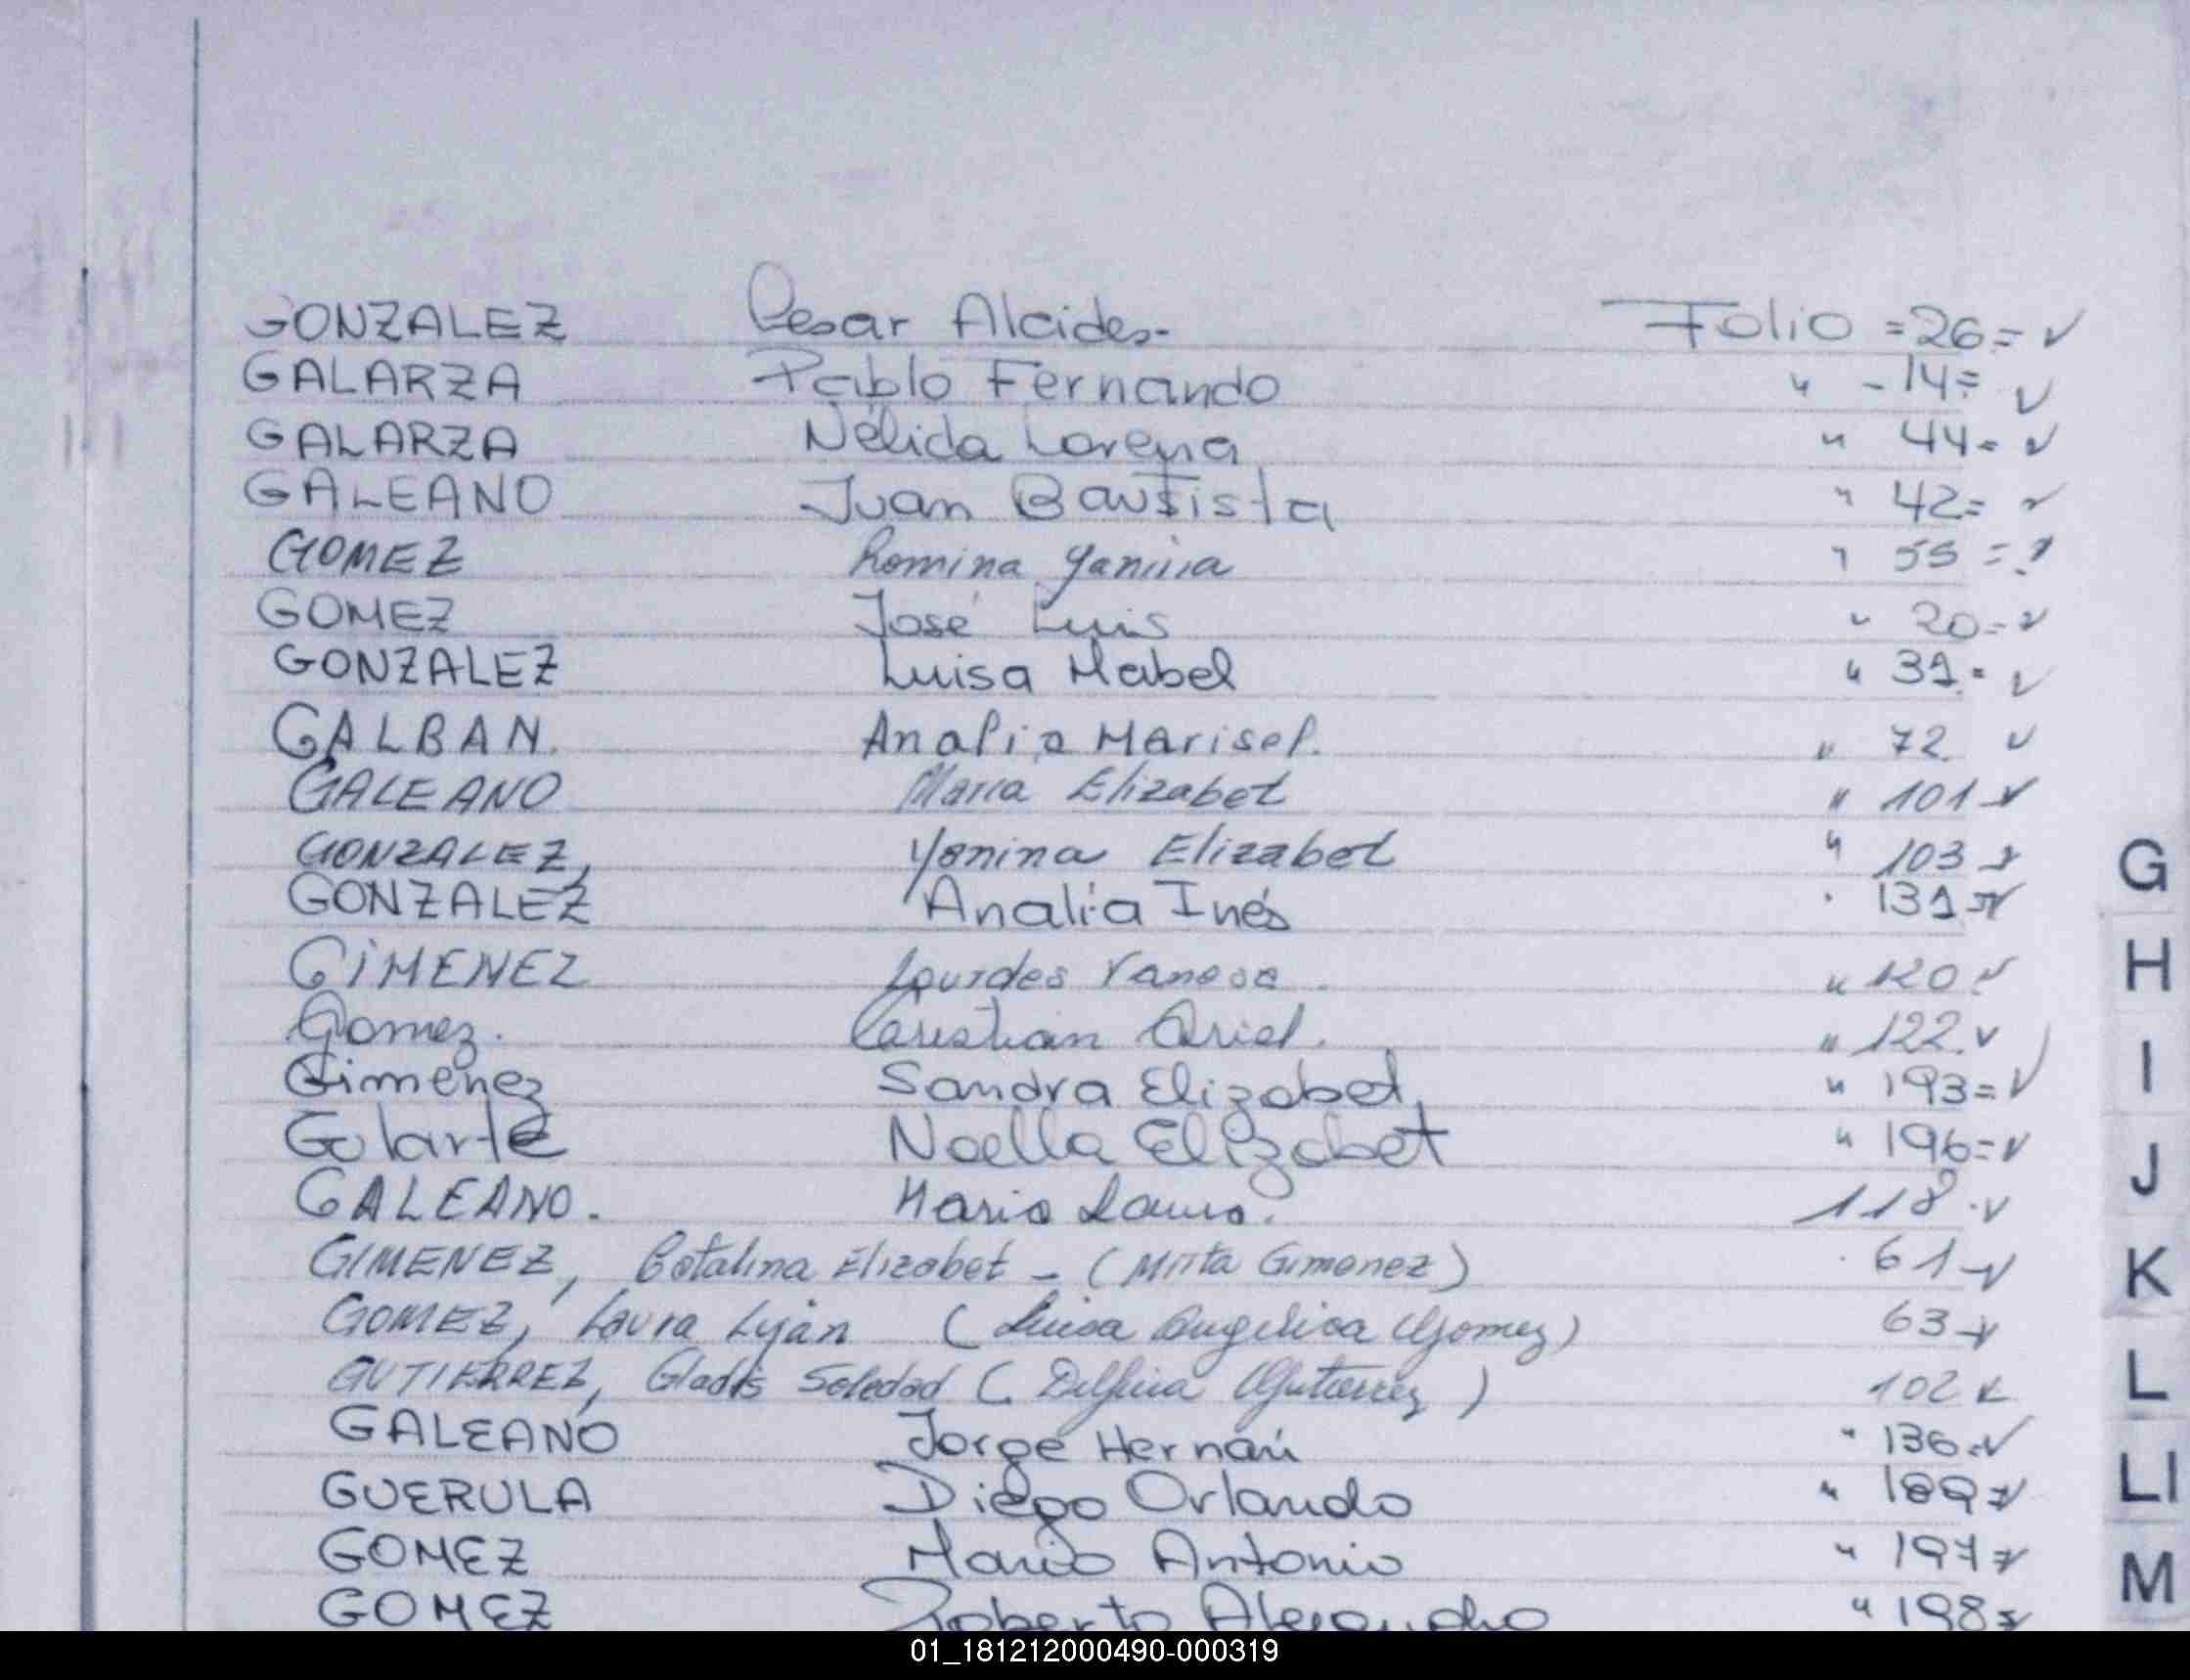 GONZALEZ Cesar Alcides- Folio =26= ✓
GALARZA Pablo Fernando " -14= ✓
GALARZA Nélida Lorena " 44= ✓
GALEANO Juan Bautista " 42= ✓
GOMEZ Romina Yanina " 55 =
GOMEZ José Luis " 20= ✓
GONZALEZ Luisa Mabel " 31= ✓
GALBAN. Analia Marisel. " 72 ✓
GALEANO Maria Elizabet " 101 ✓
GONZALEZ, Yanina Elizabet " 103 ✓
GONZALEZ Analia Inés " 131= ✓
GIMENEZ Lourdes Vanesa. " 120 ✓
Gomez. Cristian Ariel. " 122. ✓
Gimenez Sandra Elizabet. " 193= ✓
Golarte Noelia Elizabet " 196= ✓
GALEANO. Maria Laura. 118. ✓
GIMENEZ, Catalina Elizabet - (Mirta Gimenez) 61 ✓
GOMEZ, Laura Luján (Luisa Angelica Gomez) 63 ✓
GUTIERREZ, Gladis Soledad (Delfina Gutierrez) 102 ✓
GALEANO Jorge Hernán " 136= ✓
GUERULA Diego Orlando " 189= ✓
GOMEZ Mario Antonio " 197= ✓
GOMEZ Roberto Alejandro " 198= ✓
G
H
I
J
K
L
Ll
M
01_181212000490-000319